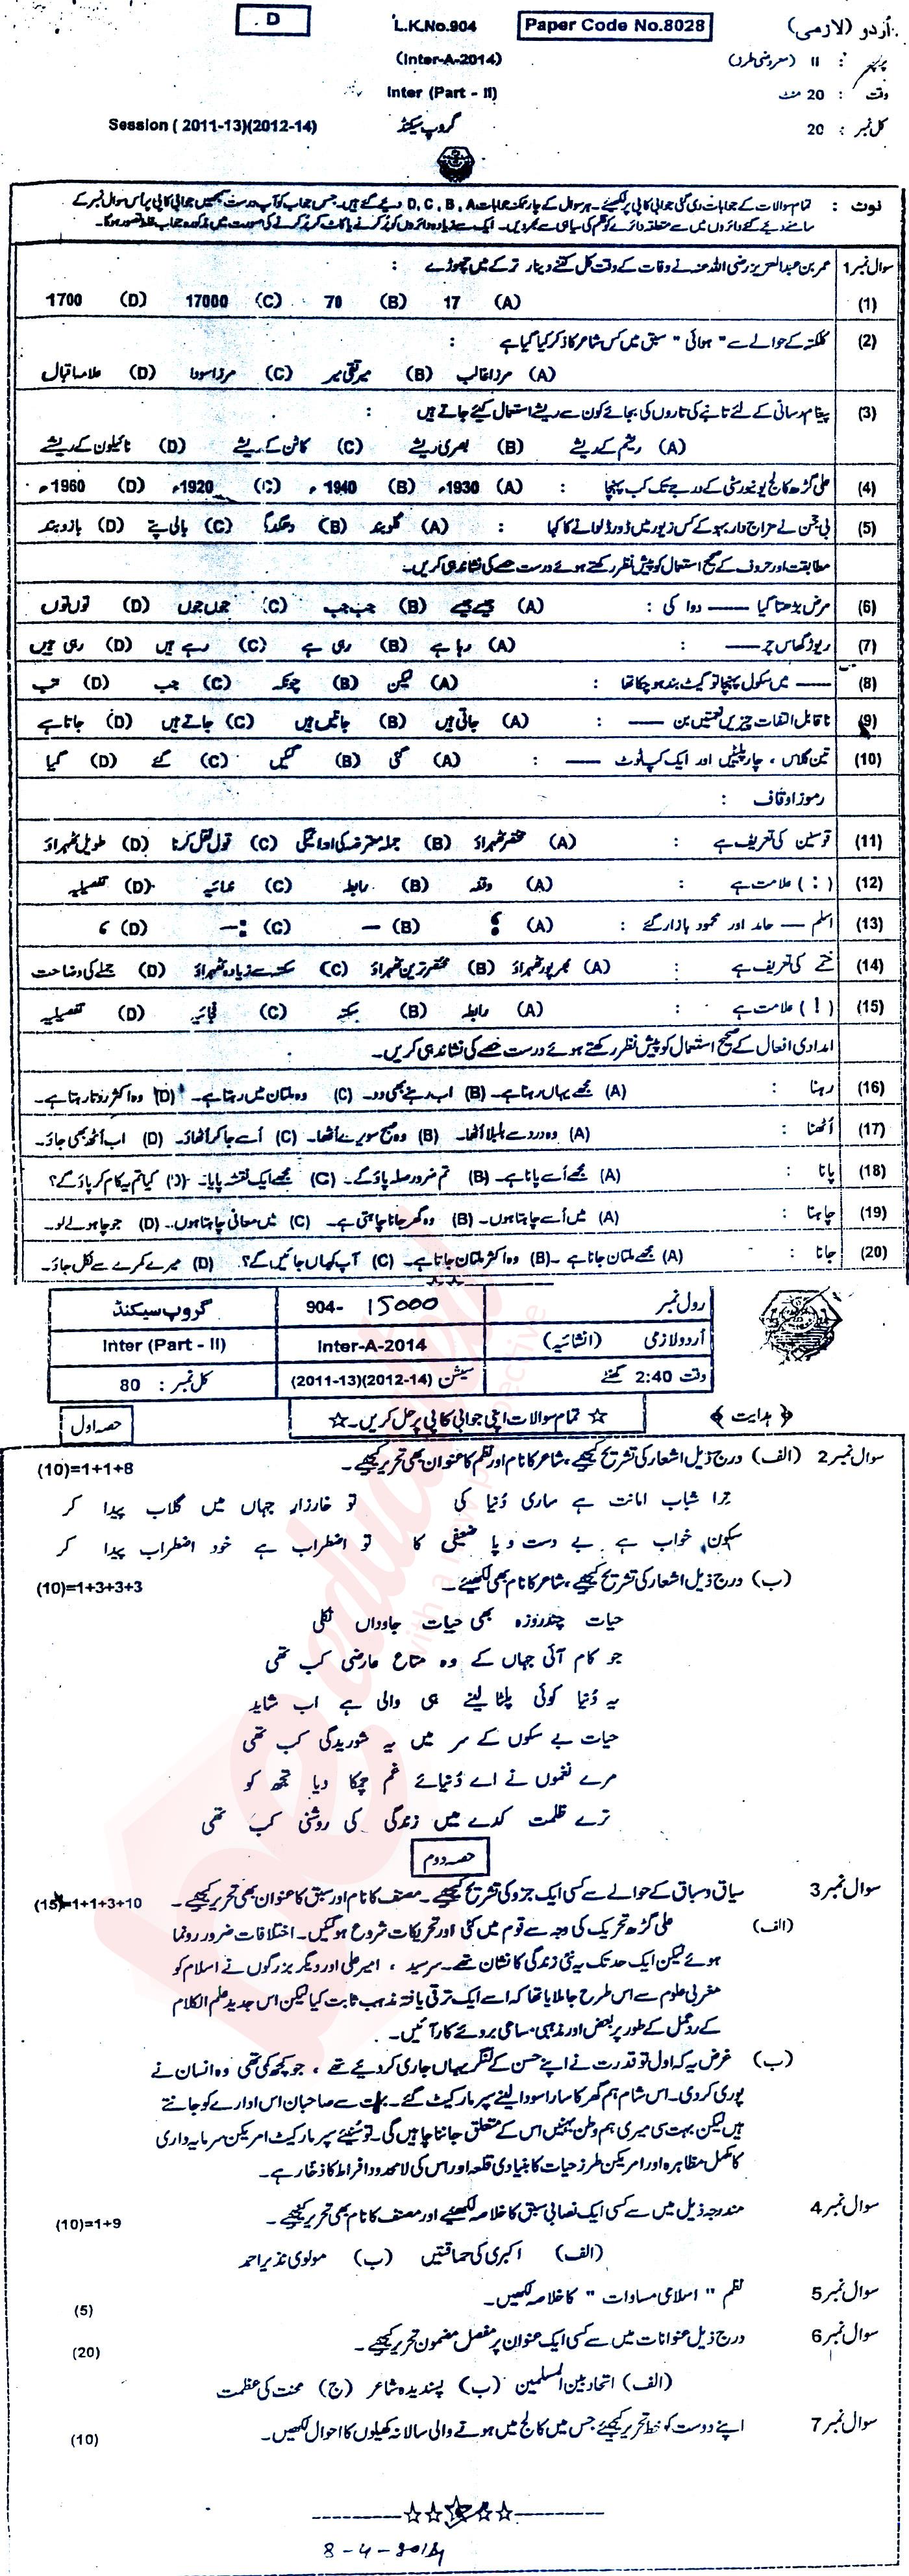 D
L.K.No.904
Paper Code No.8028
اُردو (لازمی)
(Inter-A-2014)
پرچہ : II (معروضی طرز)
Inter (Part - II)
وقت : 20 منٹ
Session ( 2011-13)(2012-14)
گروپ سیکنڈ
کل نمبر : 20
نوٹ : تمام سوالات کے جوابات دی گئی جوابی کاپی پر لکھیئے۔ ہر سوال کے چار ممکنہ جوابات D, C, B, A دیے گئے ہیں۔ جس جواب کو آپ درست سمجھیں جوابی کاپی پر اس سوال نمبر کے
سامنے دیے گئے دائروں میں سے متعلقہ دائرے کو قلم کی سیاہی سے بھر دیں۔ ایک سے زیادہ دائروں کو پُر کرنے یا کاٹ کر پُر کرنے کی صورت میں مذکورہ جواب غلط تصور ہوگا۔
سوال نمبر1 عمر بن عبدالعزیز رضی اللہ عنہ نے وفات کے وقت کل کتنے دینار ترکے میں چھوڑے :
(1) (A) 17 (B) 70 (C) 17000 (D) 1700
(2) کلکتہ کے حوالے سے " ہوائی " سبق میں کس شاعر کا ذکر کیا گیا ہے :
(A) مرزا غالب (B) میر تقی میر (C) مرزا سودا (D) علامہ اقبال
(3) پیغام رسانی کے لئے تانبے کی تاروں کی بجائے کون سے ریشے استعمال کیئے جاتے ہیں :
(A) ریشم کے ریشے (B) بصری ریشے (C) کاٹن کے ریشے (D) نائیلون کے ریشے
(4) علی گڑھ کالج یونیورسٹی کے درجے تک کب پہنچا : (A) 1930ء (B) 1940ء (C) 1920ء (D) 1960ء
(5) بی جمن نے مزاج دار بہو کے کس زیور میں ڈورڈلوانے کا کہا : (A) گلوبند (B) دھگدگی (C) بالی پتے (D) بازوبند
مطابقت اور حروف کے صحیح استعمال کو پیش نظر رکھتے ہوئے درست حصے کی نشاندہی کریں۔
(6) مرض بڑھتا گیا —— دوا کی : (A) جیسے جیسے (B) جب جب (C) جوں جوں (D) توں توں
(7) ریوڑ گھاس چر —— : (A) رہا ہے (B) رہی ہے (C) رہے ہیں (D) رہی ہیں
(8) —— میں سکول پہنچا تو گیٹ بند ہوچکا تھا : (A) لیکن (B) چونکہ (C) جب (D) تب
(9) ناقابل التفات چیزیں نعمتیں بن —— : (A) جاتی ہیں (B) جائیں ہیں (C) جاتے ہیں (D) جاتا ہے
(10) تین گلاس ، چار پلیٹیں اور ایک کپ ٹوٹ —— : (A) گئی (B) گئیں (C) گئے (D) گیا
رموز اوقاف :
(11) قوسین کی تعریف ہے : (A) مختصر ٹھہراؤ (B) جملہ معترضہ کی ادائیگی (C) قول نقل کرنا (D) طویل ٹھہراؤ
(12) ( : ) علامت ہے : (A) وقفہ (B) رابطہ (C) ندائیہ (D) تفصیلیہ
(13) اسلم —— حامد اور محمود بازار گئے : (A) ؛ (B) — (C) :— (D) ،
(14) ختمے کی تعریف ہے : (A) بھرپور ٹھہراؤ (B) مختصر ترین ٹھہراؤ (C) سکتہ سے زیادہ ٹھہراؤ (D) جملے کی وضاحت
(15) ( ! ) علامت ہے : (A) رابطہ (B) سکتہ (C) فجائیہ (D) تفصیلیہ
امدادی افعال کے صحیح استعمال کو پیش نظر رکھتے ہوئے درست حصے کی نشاندہی کریں۔
(16) رہنا : (A) مجھے یہاں رہنا ہے۔ (B) اب رہنے بھی دو۔ (C) وہ ملتان میں رہتا ہے۔ (D) وہ اکثر روتا رہتا ہے۔
(17) اُٹھنا : (A) وہ درد سے بلبلا اُٹھا۔ (B) وہ صبح سویرے اُٹھا۔ (C) اُسے جا کر اُٹھاؤ۔ (D) اب اُٹھ بھی جاؤ۔
(18) پانا : (A) مجھے اُسے پانا ہے۔ (B) تم ضرور صلہ پاؤ گے۔ (C) مجھے ایک نقشہ پایا۔ (D) کیا تم یہ کام کر پاؤ گے؟
(19) چاہنا : (A) میں اُسے چاہتا ہوں۔ (B) وہ گھر جانا چاہتی ہے۔ (C) میں معافی چاہتا ہوں۔ (D) جو چاہو لے لو۔
(20) جانا : (A) مجھے ملتان جانا ہے۔ (B) وہ اکثر ملتان جاتا ہے۔ (C) آپ کہاں جائیں گے؟ (D) میرے کمرے سے نکل جاؤ۔
رول نمبر 904- 15000 گروپ سیکنڈ
اُردو لازمی (انشائیہ) Inter-A-2014 Inter (Part - II)
وقت 2:40 گھنٹے سیشن (2012-14)(2011-13) کل نمبر : 80
﴿ ہدایت ﴾ ☆ تمام سوالات اپنی جوابی کاپی پر حل کریں۔ ☆ حصہ اول
سوال نمبر 2 (الف) درج ذیل اشعار کی تشریح کیجیے، شاعر کا نام اور نظم کا عنوان بھی تحریر کیجیے۔ (10)=1+1+8
ترا شباب امانت ہے ساری دُنیا کی تو خارزار جہاں میں گلاب پیدا کر
سکون خواب ہے بے دست و پا ضعیفی کا تو اضطراب ہے خود اضطراب پیدا کر
(ب) درج ذیل اشعار کی تشریح کیجیے، شاعر کا نام بھی لکھیئے۔ (10)=1+3+3+3
حیات چندروزہ بھی حیات جاوداں نکلی
جو کام آئی جہاں کے وہ متاع عارضی کب تھی
یہ دُنیا کوئی پلٹا لینے ہی والی ہے اب شاید
حیات بے سکوں کے سر میں یہ شوریدگی کب تھی
مرے نغموں نے اے دُنیائے غم چمکا دیا تجھ کو
ترے ظلمت کدے میں زندگی کی روشنی کب تھی
حصہ دوم
سوال نمبر 3 سیاق و سباق کے حوالے سے کسی ایک جزو کی تشریح کیجیے۔ مصنف کا نام اور سبق کا عنوان بھی تحریر کیجیے۔ (15)=1+1+3+10
(الف) علی گڑھ تحریک کی وجہ سے قوم میں کئی اور تحریکات شروع ہوگئیں۔ اختلافات ضرور رونما
ہوئے لیکن ایک حد تک یہ نئی زندگی کا نشان تھے۔ سرسید ، امیر علی اور دیگر بزرگوں نے اسلام کو
مغربی علوم سے اس طرح جا ملایا تھا کہ اسے ایک ترقی یافتہ مذہب ثابت کیا لیکن اس جدید علم الکلام
کے ردعمل کے طور پر بعض اور مذہبی مساعی بروئے کار آئیں۔
(ب) غرض یہ کہ اول تو قدرت نے اپنے حسن کے لنگر یہاں جاری کر دئیے تھے ، جو کچھ کمی تھی وہ انسان نے
پوری کردی۔ اس شام ہم گھر کا سارا سودا لینے سپر مارکیٹ گئے۔ بہت سے صاحبان اس ادارے کو جانتے
ہیں لیکن بہت سی میری ہم وطن بہنیں اس کے متعلق جاننا چاہیں گی۔ تو سُنیئے سپر مارکیٹ امریکن سرمایہ داری
کا مکمل مظاہرہ اور امریکن طرز حیات کا بنیادی قلعہ اور اس کی لامحدود افراط کا ذخار ہے۔
سوال نمبر 4 مندرجہ ذیل میں سے کسی ایک نصابی سبق کا خلاصہ لکھیئے اور مصنف کا نام بھی تحریر کیجیے۔ (10)=1+9
(الف) اکبری کی حماقتیں (ب) مولوی نذیر احمد
سوال نمبر 5 نظم " اسلامی مساوات " کا خلاصہ لکھیں۔ (5)
سوال نمبر 6 درج ذیل عنوانات میں سے کسی ایک عنوان پر مفصل مضمون تحریر کیجیے۔ (20)
(الف) اتحاد بین المسلمین (ب) پسندیدہ شاعر (ج) محنت کی عظمت
سوال نمبر 7 اپنے دوست کو خط تحریر کیجیئے جس میں کالج میں ہونے والی سالانہ کھیلوں کا احوال لکھیں۔ (10)
8-4-2014